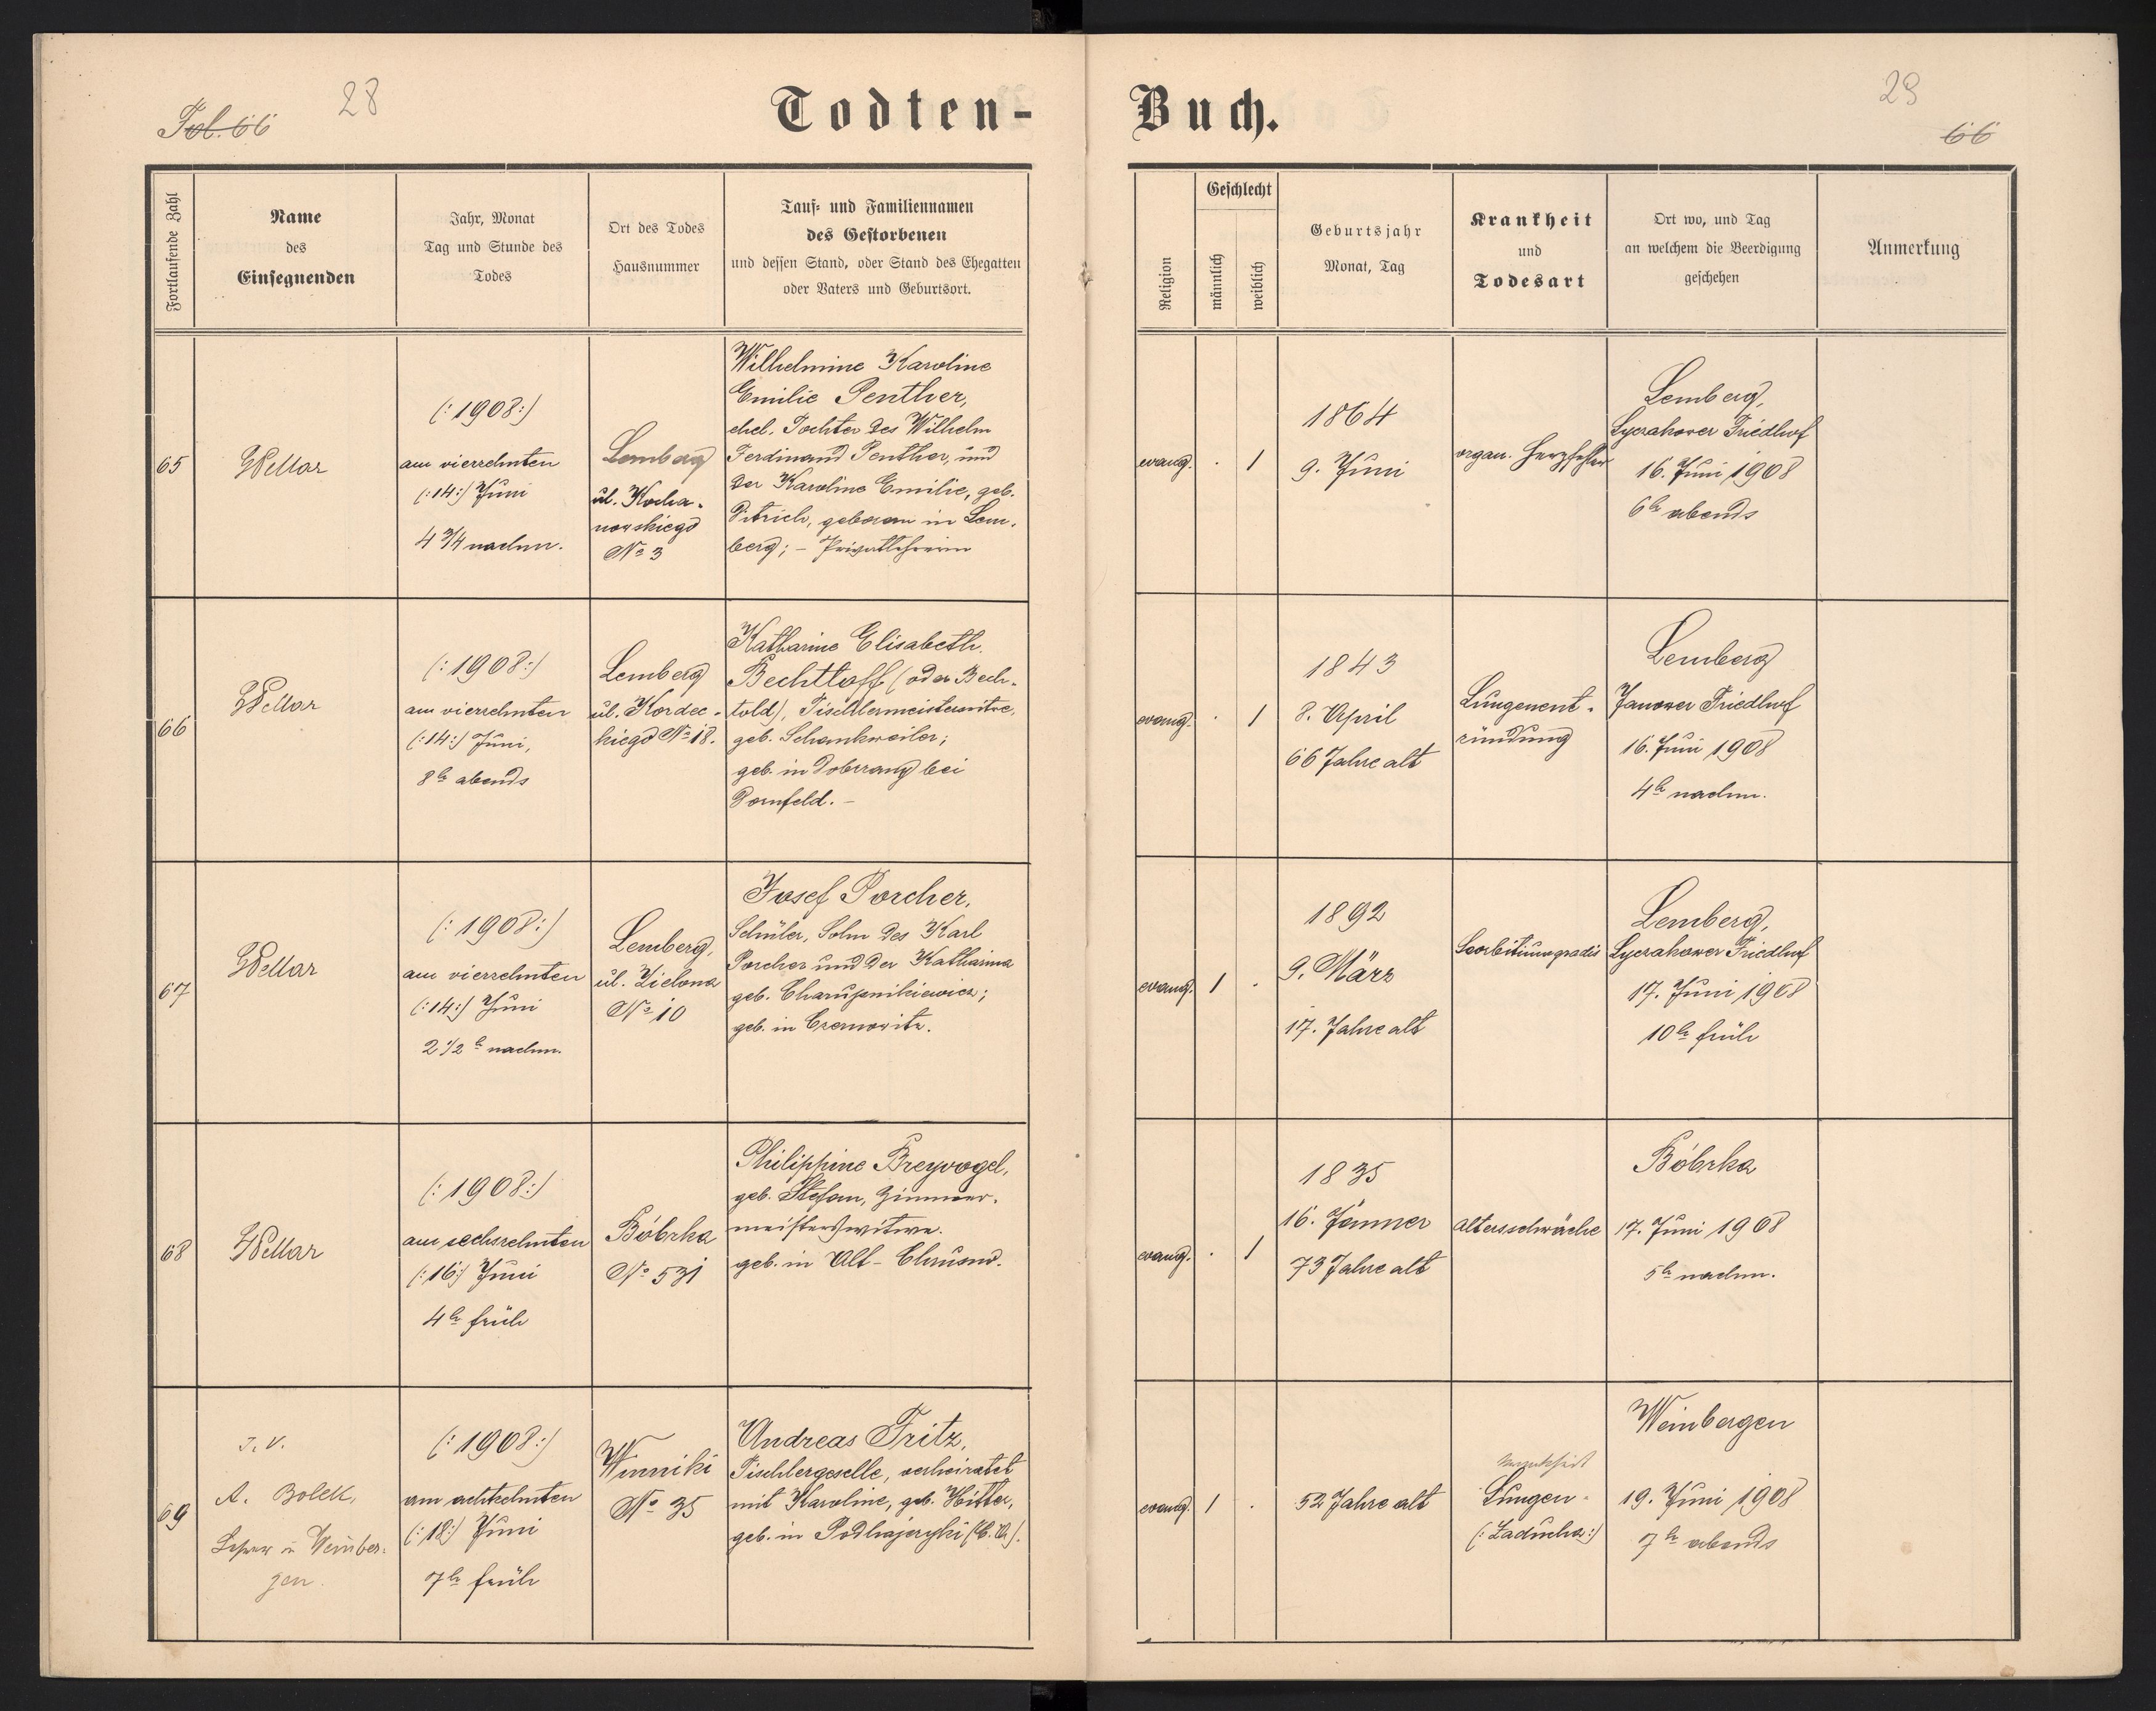 Fol. 66
28
Todten-
Buch.
29
66
Fortlaufende Zahl
Name
des
Einsegnenden
Jahr, Monat
Tag und Stunde des
Todes
Ort des Todes
Hausnummer
Tauf- und Familiennamen
des Gestorbenen
und dessen Stand, oder Stand des Ehegatten
oder Vaters und Geburtsort.
Religion
Geschlecht
männlich
weiblich
Geburtsjahr
Monat, Tag
Krankheit
und
Todesart
Ort wo, und Tag
an welchem die Beerdigung
geschehen
Anmerkung
65
(:1908:)
am vierzehnten
(:14:) Juni
4 3/4 nachm.
Lemberg
ul. Kocha-
nowskiego
No 3
Wilhelmine Karoline
Emilie Penther,
ehel. Tochter des Wilhelm
Ferdinand Penther, und
der Karoline Emilie, geb.
geboren in Lem-
berg; - Privatlehrerin
evang.
.
1
1864
9. Juni
organ. Herzfehler
Lemberg,
Lyczakower Friedhof
16. Juni 1908
6h abends
66
(:1908:)
am vierzehnten
(:14:) Juni,
8h abends
Lemberg
ul. Kordec-
kiego No 18.
Katharine Elisabeth
Bechtloff (oder Bech-
told), Tischlermeisterswitwe,
geb. Schankweiler;
geb. in bei
Dornfeld. -
evang.
.
1
1843
8. April
66 Jahre alt
Lungenent-
zündung
Lemberg
Janower Friedhof
16. Juni 1908
4h nachm.
67
(:1908:)
am vierzehnten
(:14:) Juni
2 1/2 h nachm.
Lemberg,
ul. Zielona
No 10
Josef Porcher,
Schüler, Sohn des Karl
Porcher und der Katharina
geb.
geb. in Czernowitz.
evang.
1
.
1892
9. März
17. Jahre alt
Lemberg,
Lyczakower Friedhof
17. Juni 1908
10h früh
68
(:1908:)
am sechzehnten
(:16:) Juni
4h früh
Bóbrka
No 531
Philippine Breyvogel,
geb. Stefan, Zimmer-
meisterswitwe.
geb. in Alt-Chrusno.
evang.
.
1
1835
16. Jänner
73 Jahre alt
Altersschwäche
Bóbrka
17. Juni 1908
5h nachm.
69
I. V.
A. Bolek,
Lehrer in Weinber-
gen.
(:1908:)
am achtzehnten
(:18:) Juni
7h früh
Winniki
No 35
Andreas Fritz,
Tischlergeselle, verheiratet
mit Karoline, geb.
geb. in
evang.
1
.
52 Jahre alt
Lungen-
(:Zaducha:)
Weinbergen
19. Juni 1908
7h abends